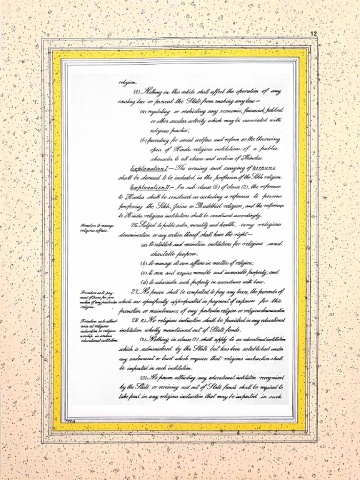 12
religion.
(2). Nothing in this article shall affect the operation of any
existing law or prevent the State from making any law—
(a) regulating or restricting any economic, financial, political
or other secular activity which may be associated with
religious practice;
(b) providing for social welfare and reform or the throwing
open of Hindu religious institutions of a public
character to all classes and sections of Hindus.
Explanation I — The wearing and carrying of kirpans
shall be deemed to be included in the profession of the Sikh religion.
Explanation II — In sub-clause (b) of clause (2), the reference
to Hindus shall be construed as including a reference to persons
professing the Sikh, Jaina or Buddhist religion, and the reference
to Hindu religious institutions shall be construed accordingly.
Freedom to manage
religious affairs.
26. Subject to public order, morality and health, every religious
denomination or any section thereof shall have the right—
(a) to establish and maintain institutions for religious and
charitable purposes;
(b) to manage its own affairs in matters of religion;
(c) to own and acquire movable and immovable property; and
(d) to administer such property in accordance with law.
Freedom as to pay-
ment of taxes for pro-
motion of any particular
religion.
27. No person shall be compelled to pay any taxes, the proceeds of
which are specifically appropriated in payment of expenses for the
promotion or maintenance of any particular religion or religious denomination.
Freedom as to attend-
ance at religious
instruction or religious
worship in certain
educational institutions.
28. (1). No religious instruction shall be provided in any educational
institution wholly maintained out of State funds.
(2). Nothing in clause (1) shall apply to an educational institution
which is administered by the State but has been established under
any endowment or trust which requires that religious instruction shall
be imparted in such institution.
(3). No person attending any educational institution recognised
by the State or receiving aid out of State funds shall be required to
take part in any religious instruction that may be imparted in such